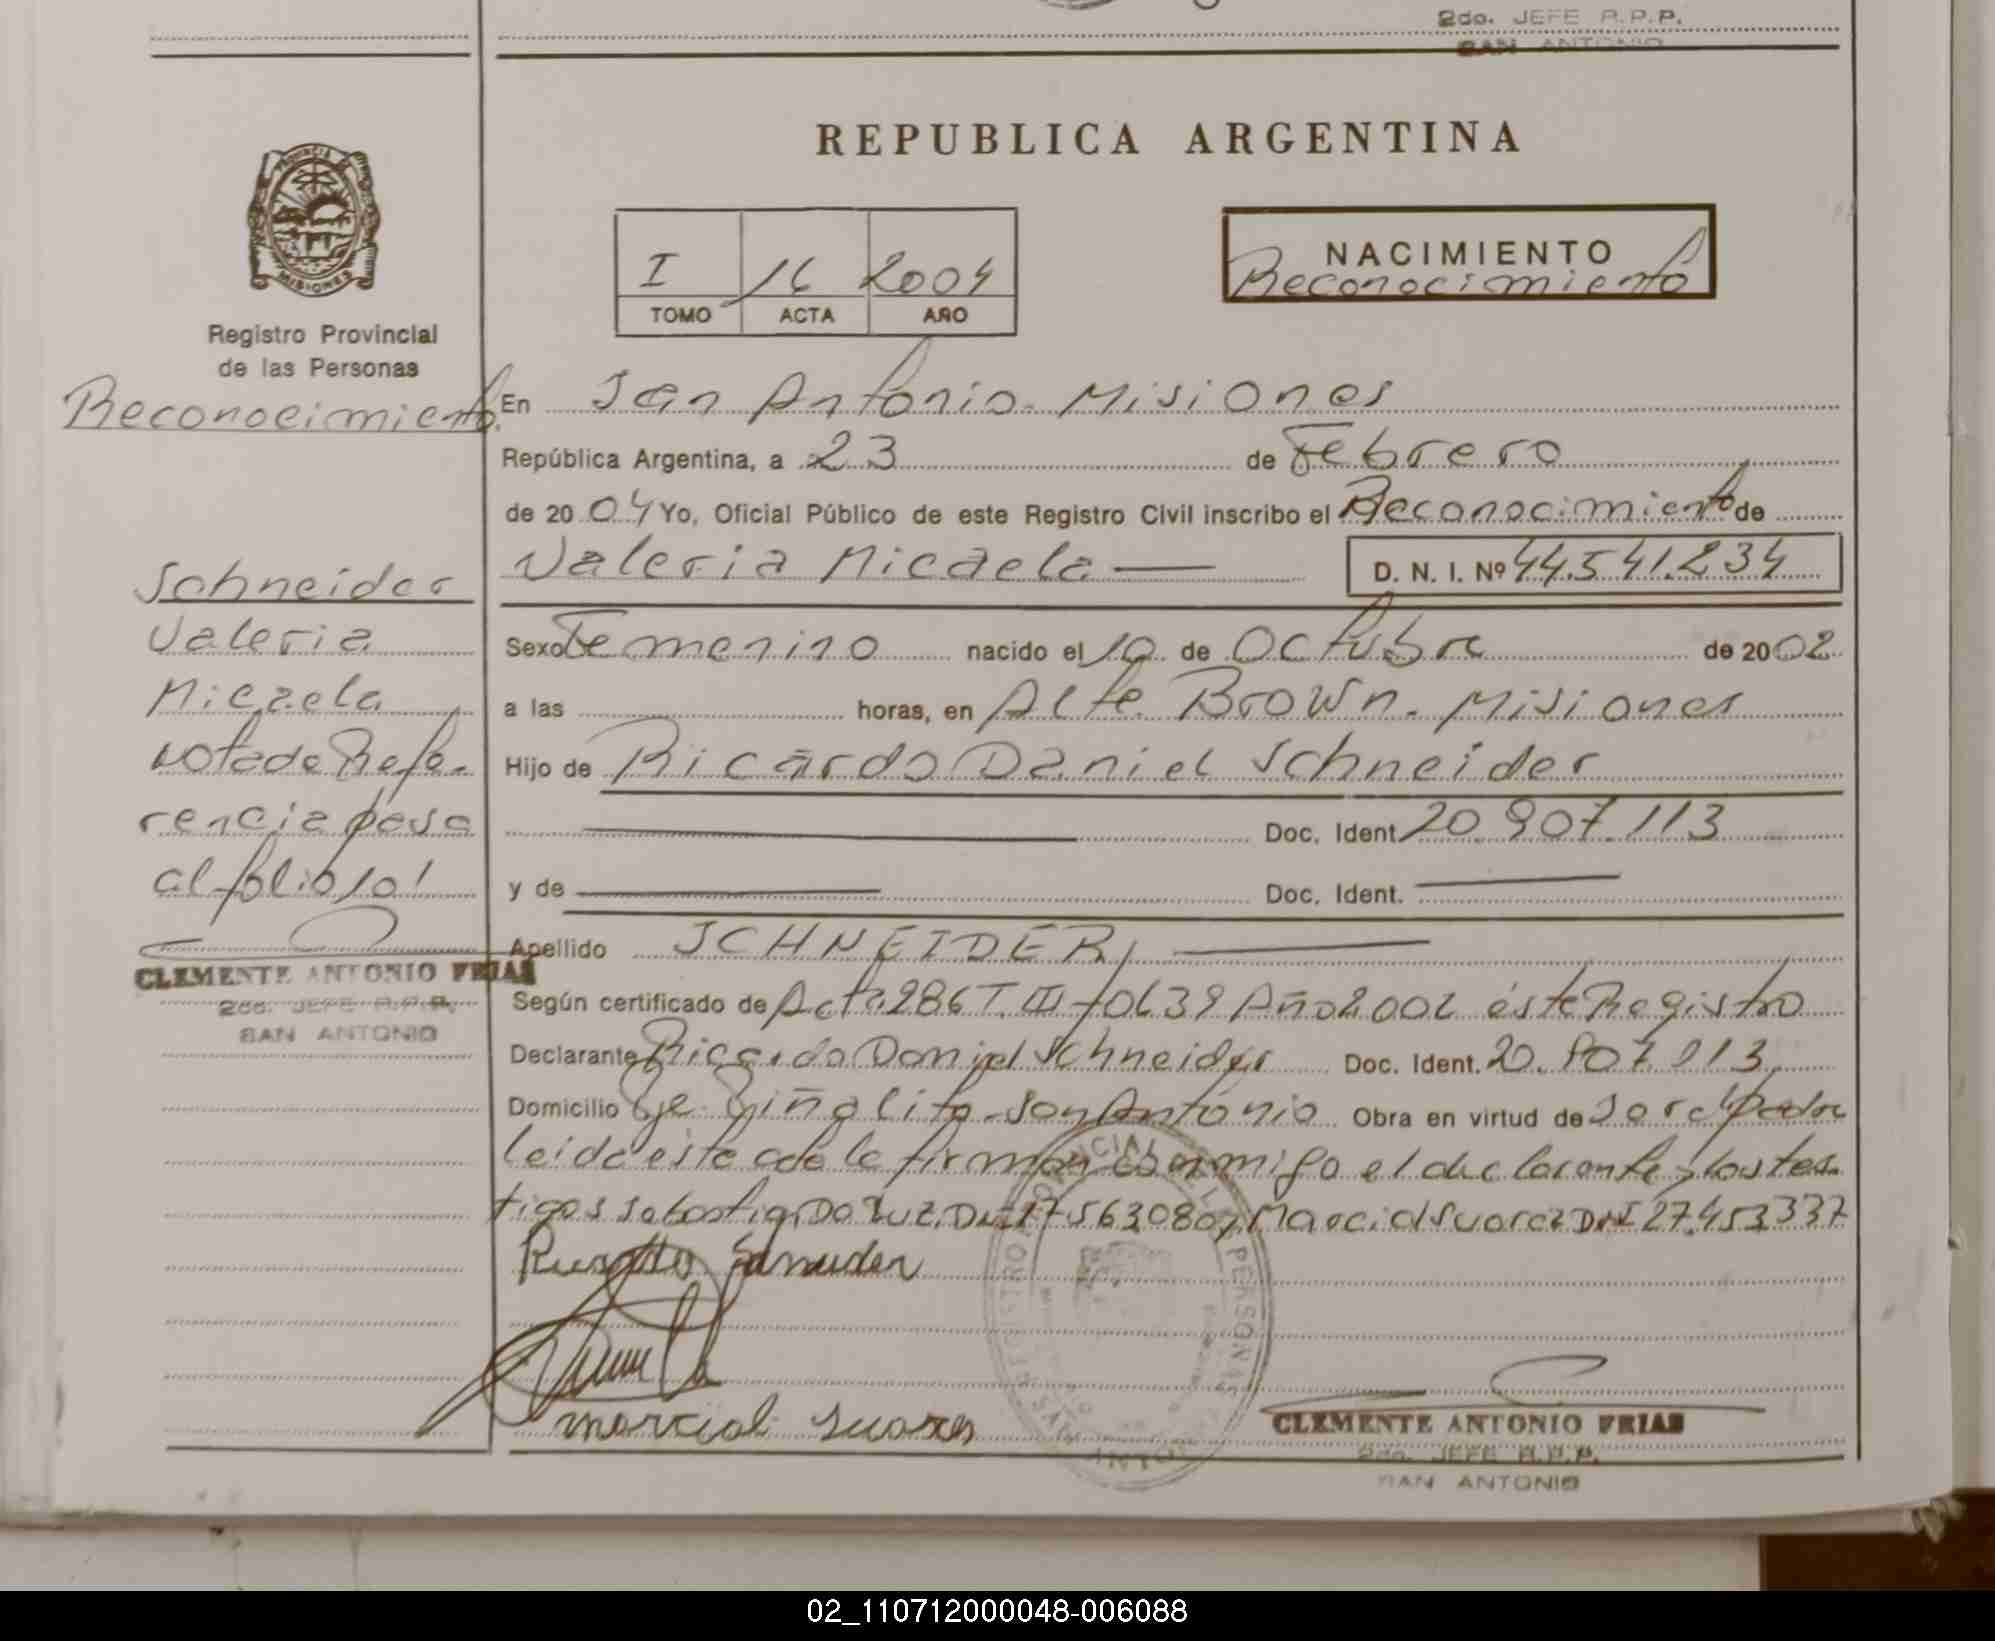 2do. JEFE R.P.P.
SAN ANTONIO
REPUBLICA ARGENTINA
PROVINCIA
MISIONES
Registro Provincial
de las Personas
I 16 2004
TOMO ACTA AÑO
NACIMIENTO
Reconocimiento
Reconocimiento
En San Antonio. Misiones
República Argentina, a 23 de Febrero
de 2004 Yo, Oficial Público de este Registro Civil inscribo el Reconocimiento de
Valeria Micaela D. N. I. Nº 44.541.234
Schneider
Valeria
Micaela
Nota de Refe-
rencia pasa
al folio 101
CLEMENTE ANTONIO FRIAS
2do. JEFE R.P.P.
SAN ANTONIO
Sexo Femenino nacido el 10 de Octubre de 2002
a las horas, en Alte Brown. Misiones
Hijo de Ricardo Daniel Schneider
Doc. Ident. 20.907.113
y de Doc. Ident.
Apellido SCHNEIDER
Según certificado de Acta 286 T. III Año 2002 éste Registro
Declarante Ricardo Daniel Schneider Doc. Ident. 20.907.113
Domicilio Pje Piñalito San Antonio Obra en virtud de ser el padre
leida este acta la firman conmigo el declarante y los tes-
tigos Sebastian Da Luz, DNI 17563080 y Marcial Suarez DNI 27.453.337
marcial suares
CLEMENTE ANTONIO FRIAS
2do. JEFE R.P.P.
SAN ANTONIO
02_110712000048-006088